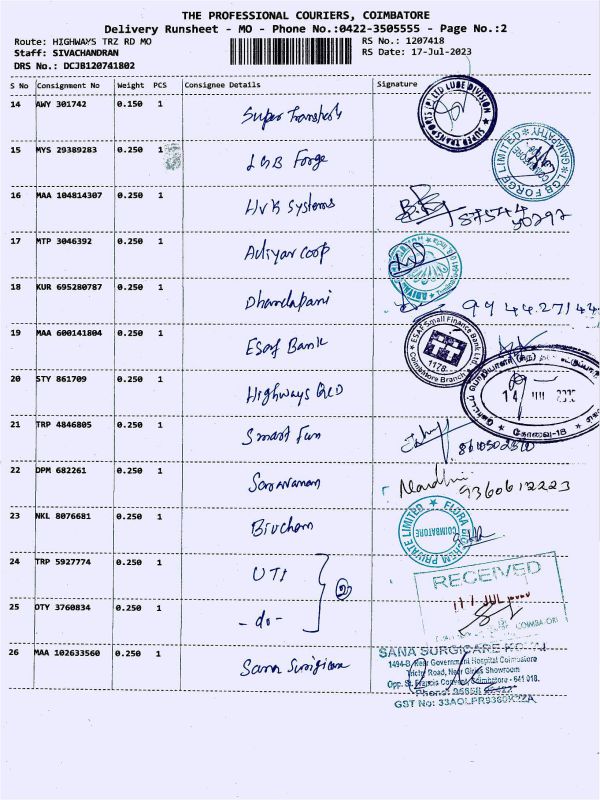 THE PROFESSIONAL COURIERS, COIMBATORE
Delivery Runsheet - MO - Phone No.:0422-3505555 - Page No.:2
Route: HIGHWAYS TRZ RD MO
RS No.: 1207418
Staff: SIVACHANDRAN
RS Date: 17-Jul-2023
DRS No.: DCJB120741802
S No Consignment No Weight PCS Consignee Details Signature
14 AWY 301742 0.150 1 Super Transports
SUPER TRANSPORTS (P) LTD LUBE DIVISION
15 MYS 29389283 0.250 1 LGB Forge
LGB FORGE LIMITED GANAPATHY
16 MAA 104814307 0.250 1 HVK Systems
87544
30292
17 MTP 3046392 0.250 1 Adiyar Coop
18 KUR 695280787 0.250 1 Dhandapani
99442714
19 MAA 600141804 0.250 1 Esaf Bank
ESAF Small Finance Bank Ltd.
1178
Coimbatore Branch
20 STY 861709 0.250 1 Highways
கோவை-18
21 TRP 4846805 0.250 1 Smart Fun
22 DPM 682261 0.250 1 Saravanam
9360612223
23 NKL 8076681 0.250 1 Biochem
PRIVATE LIMITED
COIMBATORE
24 TRP 5927774 0.250 1 UTI
2
RECEIVED
25 OTY 3760834 0.250 1 - do -
26 MAA 102633560 0.250 1 Sana Surgicare
SANA SURGICARE
1494-B, Near Government Hospital Coimbatore
Trichy Road, Near Showroom
Opp. St. Francis Convent, Coimbatore - 641 018.
Phone:
GST No: